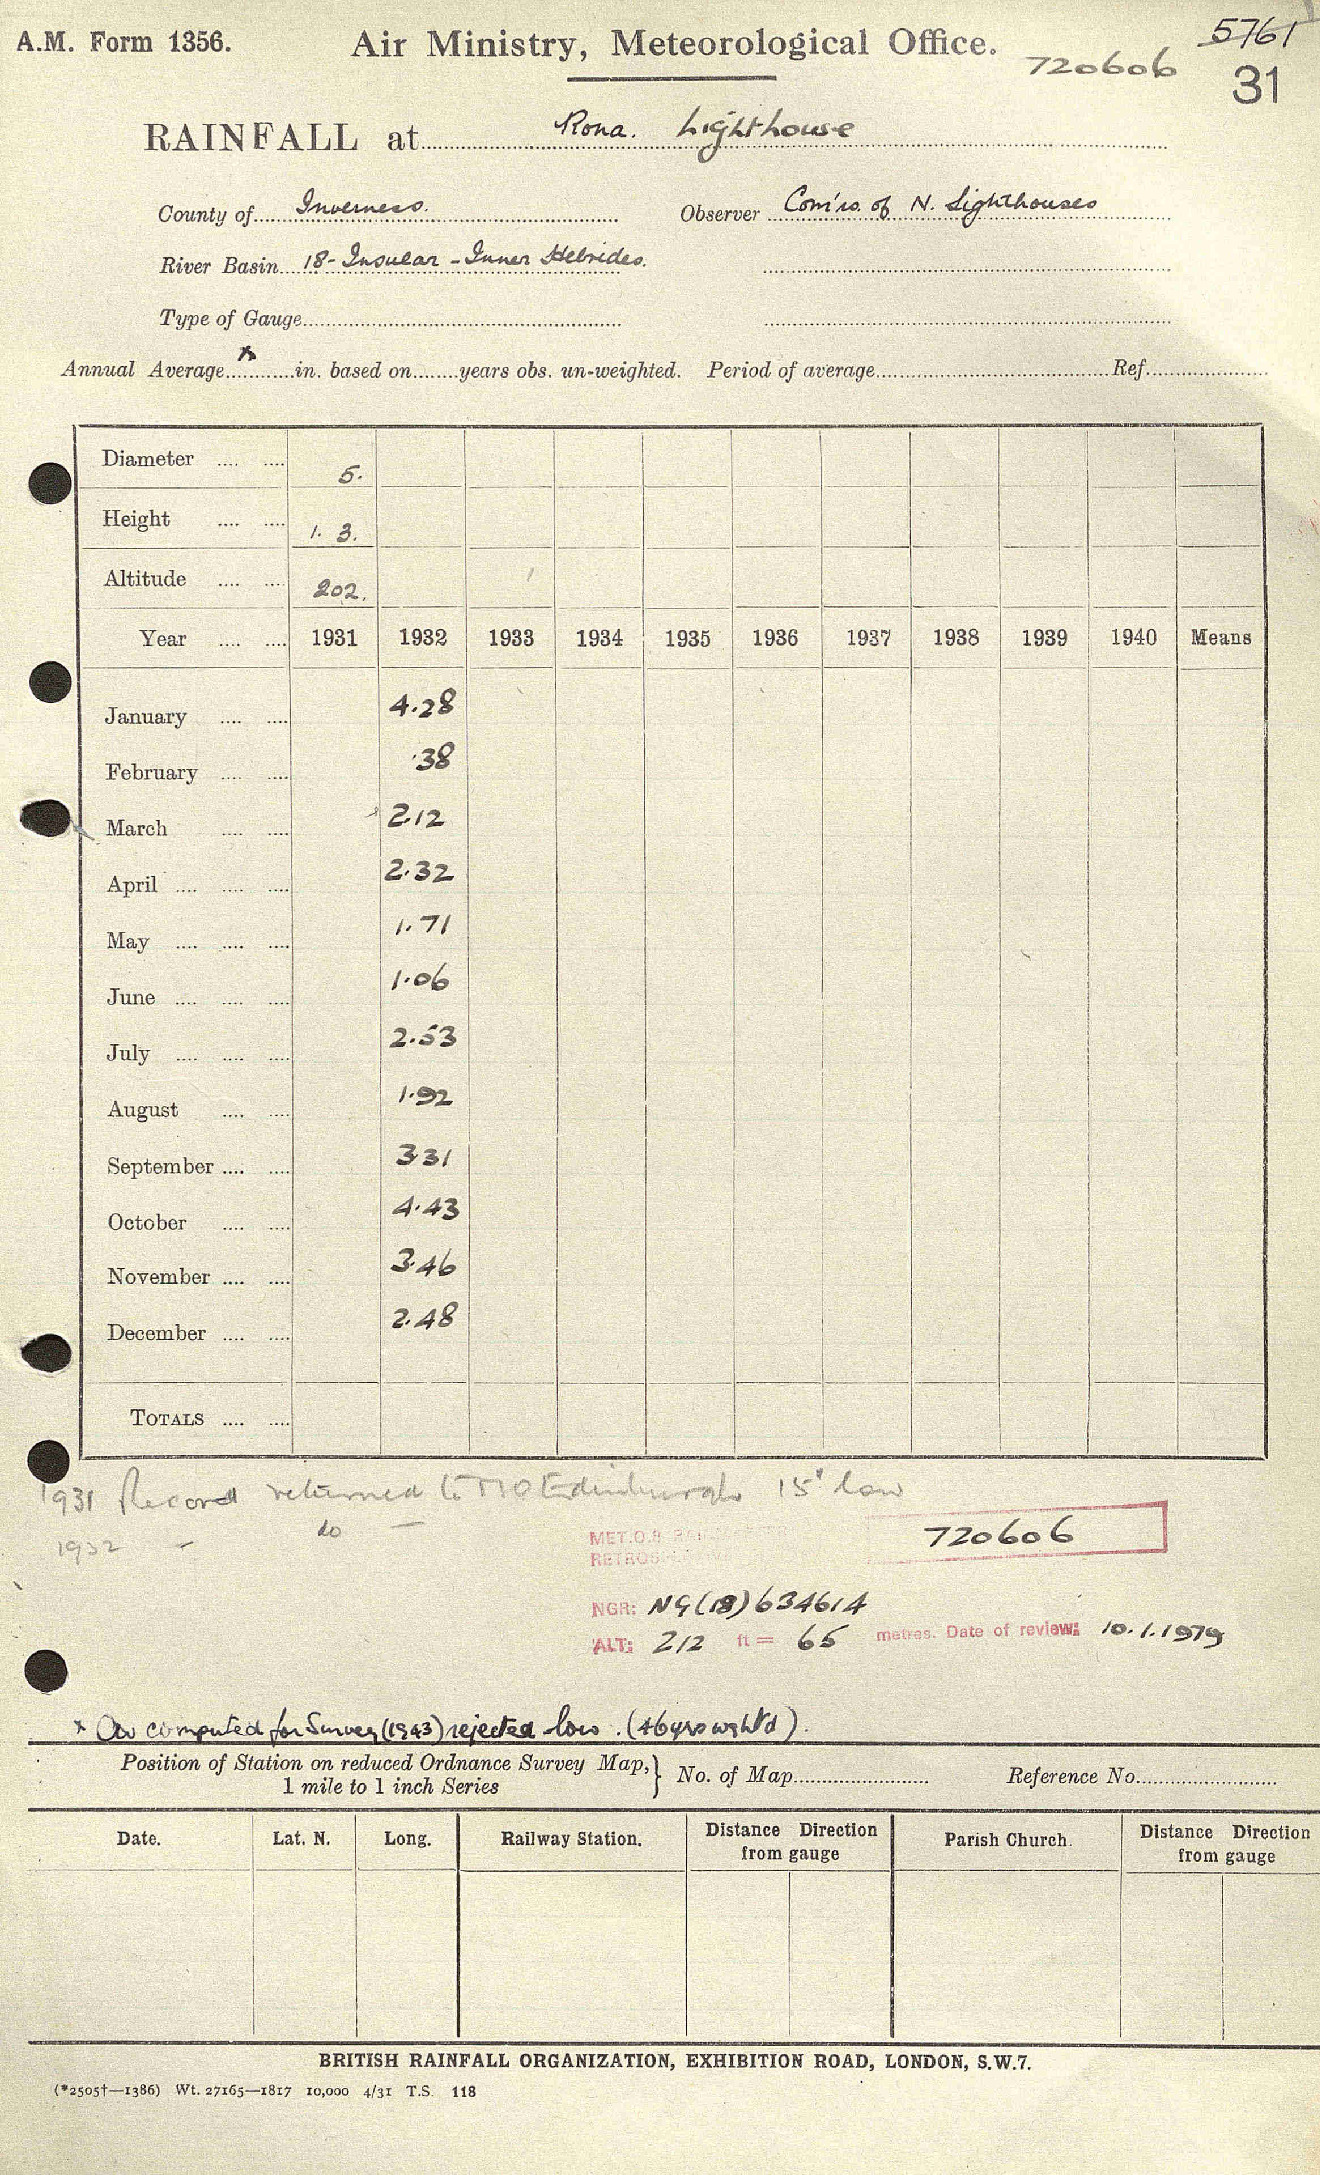 A.M. Form 1356.
Air Ministry, Meteorological Office.
5761
720606
31
RAINFALL at Rona. Lighthouse
County of Inverness. Observer Com'rs. of N. Lighthouses
River Basin 18- Insular - Inner Hebrides.
Type of Gauge
Annual Average x in. based on years obs. un-weighted. Period of average Ref.
Diameter 5.
Height 1. 3.
Altitude 202.
Year 1931 1932 1933 1934 1935 1936 1937 1938 1939 1940 Means
January 4.28
February .38
March 2.12
April 2.32
May 1.71
June 1.06
July 2.53
August 1.92
September 3.31
October 4.43
November 3.46
December 2.48
TOTALS
1931 Record returned to MO Edinburgh 15" low
1932 - do -
MET.O.8
720606
NGR: NG(18)634614
ALT: 212 ft = 65 metres. Date of review: 10.1.1979
x Av computed for Survey (1943) rejected low. (46yrs wght'd).
Position of Station on reduced Ordnance Survey Map, 1 mile to 1 inch Series } No. of Map Reference No.
Date. Lat. N. Long. Railway Station. Distance Direction from gauge Parish Church. Distance Direction from gauge
BRITISH RAINFALL ORGANIZATION, EXHIBITION ROAD, LONDON, S.W.7.
(*2505†—1386) Wt. 27165—1817 10,000 4/31 T.S. 118